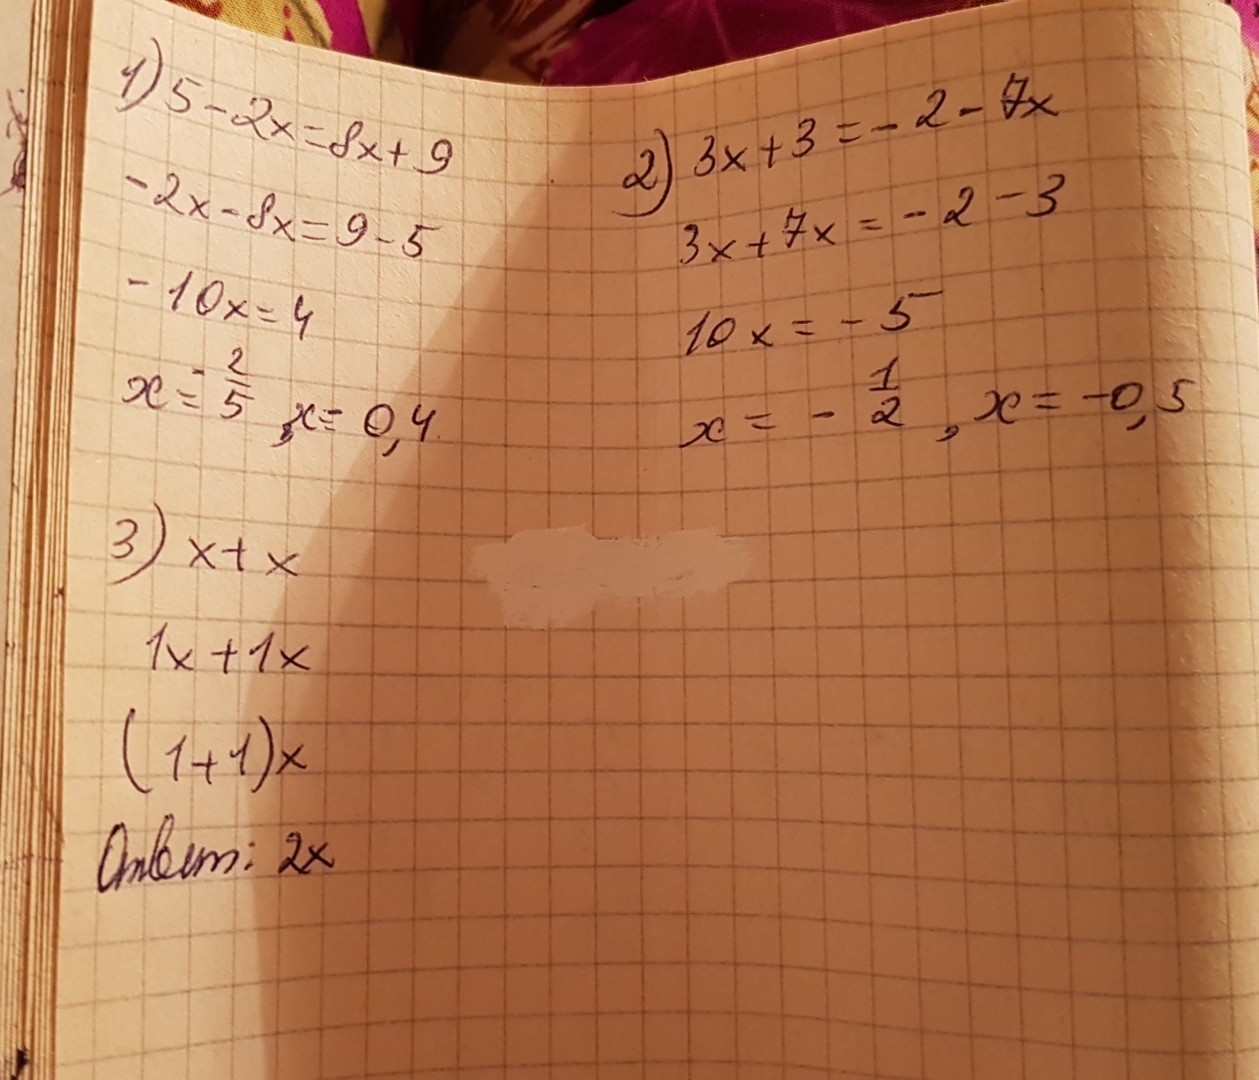 1) 5-2x=8x+9
-2x-8x=9-5
-10x=4
x=-2/5, x=0,4
2) 3x+3=-2-7x
3x+7x=-2-3
10x=-5
x=-1/2, x=-0,5
3) x+x
1x+1x
(1+1)x
Ответ: 2x